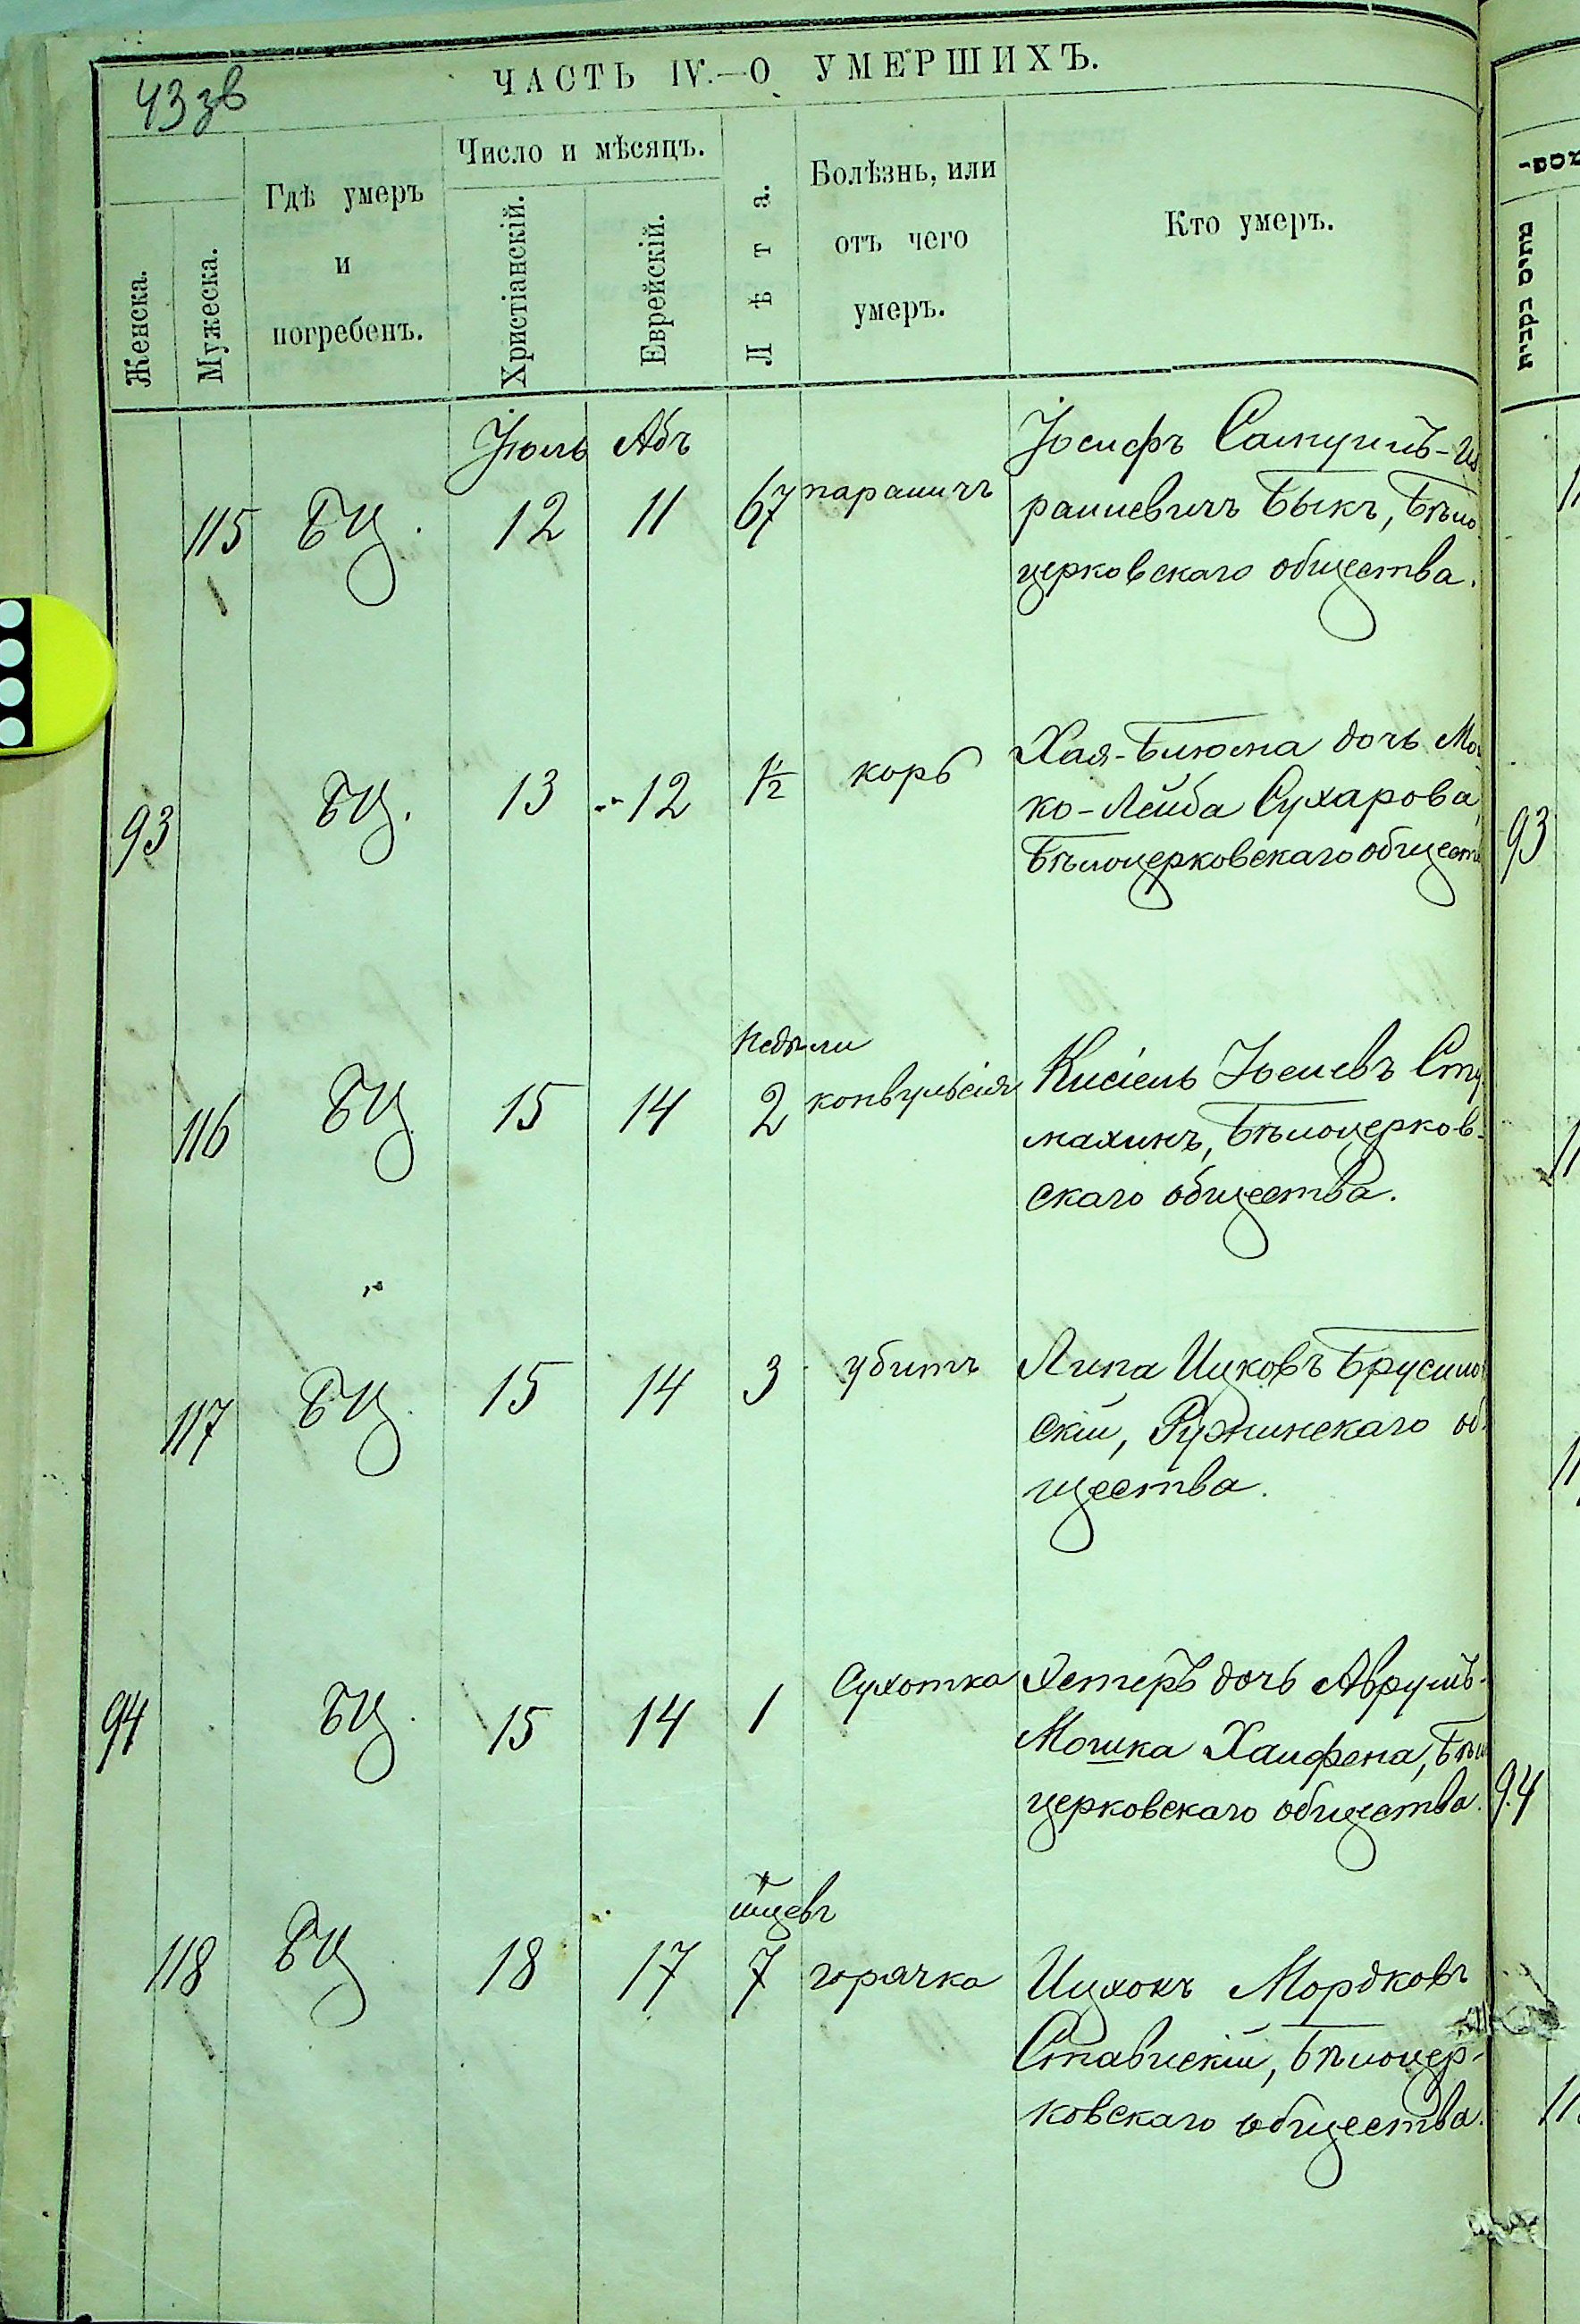 43 зв
ЧАСТЬ IV.—О УМЕРШИХЪ.
Женска.
Мужеска.
Гдѣ умеръ
и
погребенъ.
Число и мѣсяцъ.
Христіанскій.
Еврейскій.
Лѣта.
Болѣзнь, или
отъ чего
умеръ.
Кто умеръ.
Іюль Абъ
115 БЦ. 12 11 67 параличъ
Іосифъ Самуилъ-Из
раилевичъ Быкъ, Бѣло
церковскаго общества.
93 БЦ. 13 12 1/2 корь
Хая-Блюма дочь Мо
ко-Лейба Сухарова,
Бѣлоцерковскаго общест
недѣли
116 БЦ 15 14 2 конвульсія
Кисіель Іосиевъ Сту
махинъ, Бѣлоцерков-
скаго общества.
117 БЦ. 15 14 3 убитъ
Липа Ицковъ Брусило
скій, Ружинскаго об
щества.
94 БЦ. 15 14 1 Сухотка
Эстеръ дочь Аврумъ-
Мошка Хаифена, Бѣл
церковскаго общества.
мцевъ
118 БЦ 18 17 7 горячка
Ицхокъ Мордковъ
Ставискій, Бѣлоцер-
ковскаго общества.
93
94